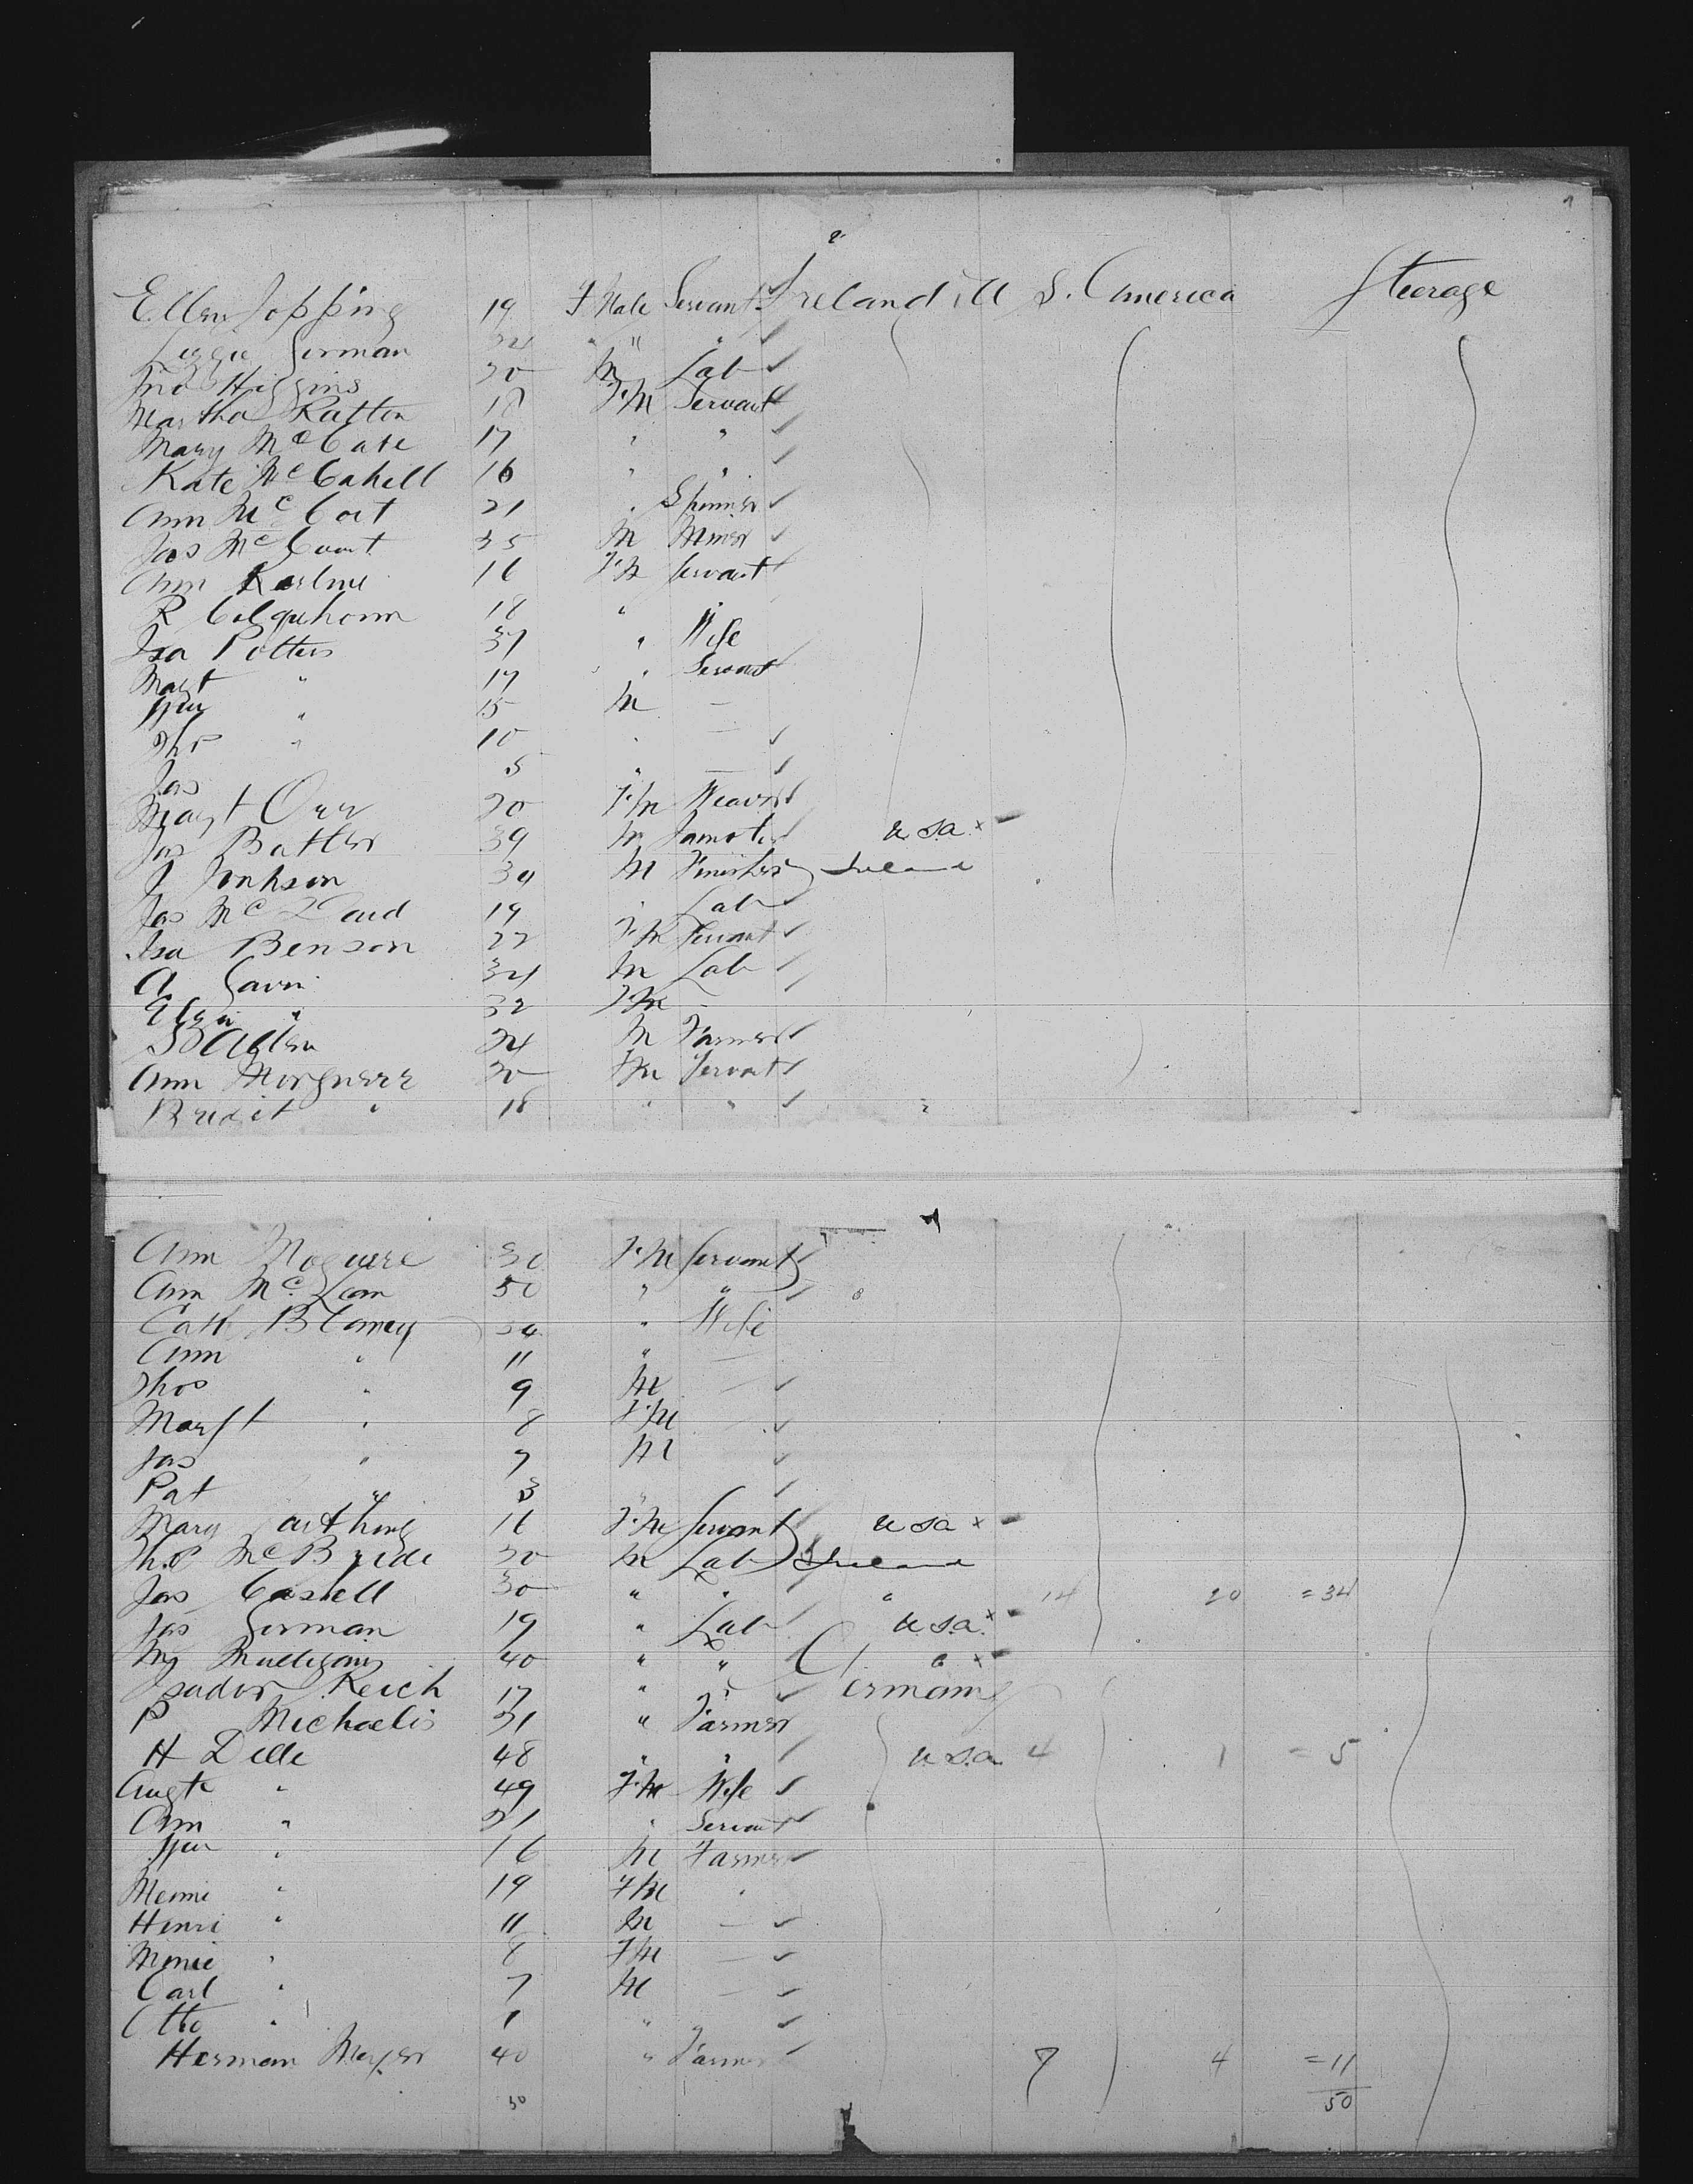 Ellen Topping 19 F Male Servant Ireland U S. America Steerage
Lizzie Gorman 24 " " "
Jno Higgins 20 M Lab
Martha Ratton 18 F.M Servant
Mary McCabe 17 " "
Kate McCahell 16 " "
Ann McCort 21 " Spinner
Jas McCourt 35 M Miner
Ann 16 F.M Servant
R Colquhoun 18 " "
Isa Potters 37 " Wife
Margt " 17 " Servant
Wm " 15 M —
Thos " 10 " —
Jas 5 " —
Margt Orr 20 F.M Weaver
Jas Batler 39 M U.S.A. x
J Jonhson 34 M Finisher Ireland
Jas Mc 19 " Lab
Isa Benson 22 F.M Servant
A. Gavin 34 M Lab
" 32 F.M —
24 M Farmer
Ann 30 F.M Servant
Bridgit " 18 " "
Ann Maguire 30 F.M Servant
Ann Mc. 50 " "
Cath Blaney 34 " Wife
Ann " 11 " —
Thos " 9 M —
Margt " 8 F.M —
Jas " 7 M
Pat " 3 "
Mary 16 F.M Servant U.S.A x
Thos McBride 20 M Lab Ireland
Jas Caskell 30 " " " 14 20 = 34
Jas Gorman 19 " Lab U.S.A. x
Mulligan 40 " " " x
Isador Reich 17 " " Germany
P Michaelis 31 " Farmer
H Delle 48 " " U.S.A 4 1 = 5
Augte " 49 F.M Wife
Ann " 21 " Servant
Wm " 16 M Farmer
" 19 F.M "
Henri " 11 M —
Minie " 8 F.M —
Carl " 7 M —
Otto " 1 " "
Herman Meyer 40 " Farmer 7 4 = 11
50 50